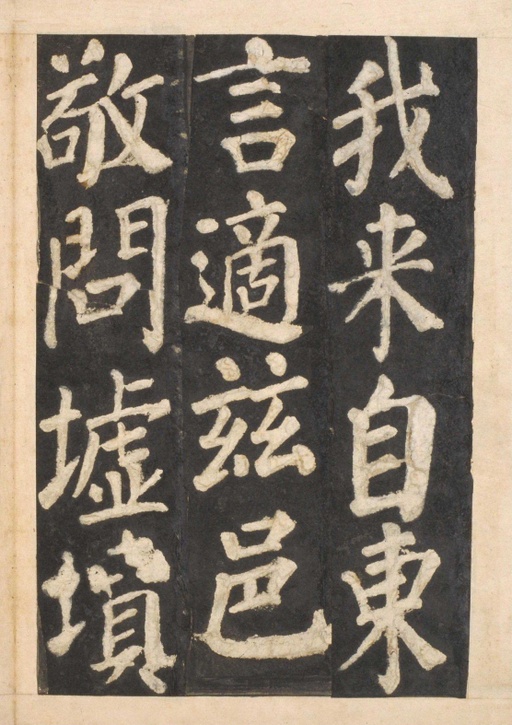 我来自東
言適茲邑
敬問墟墳